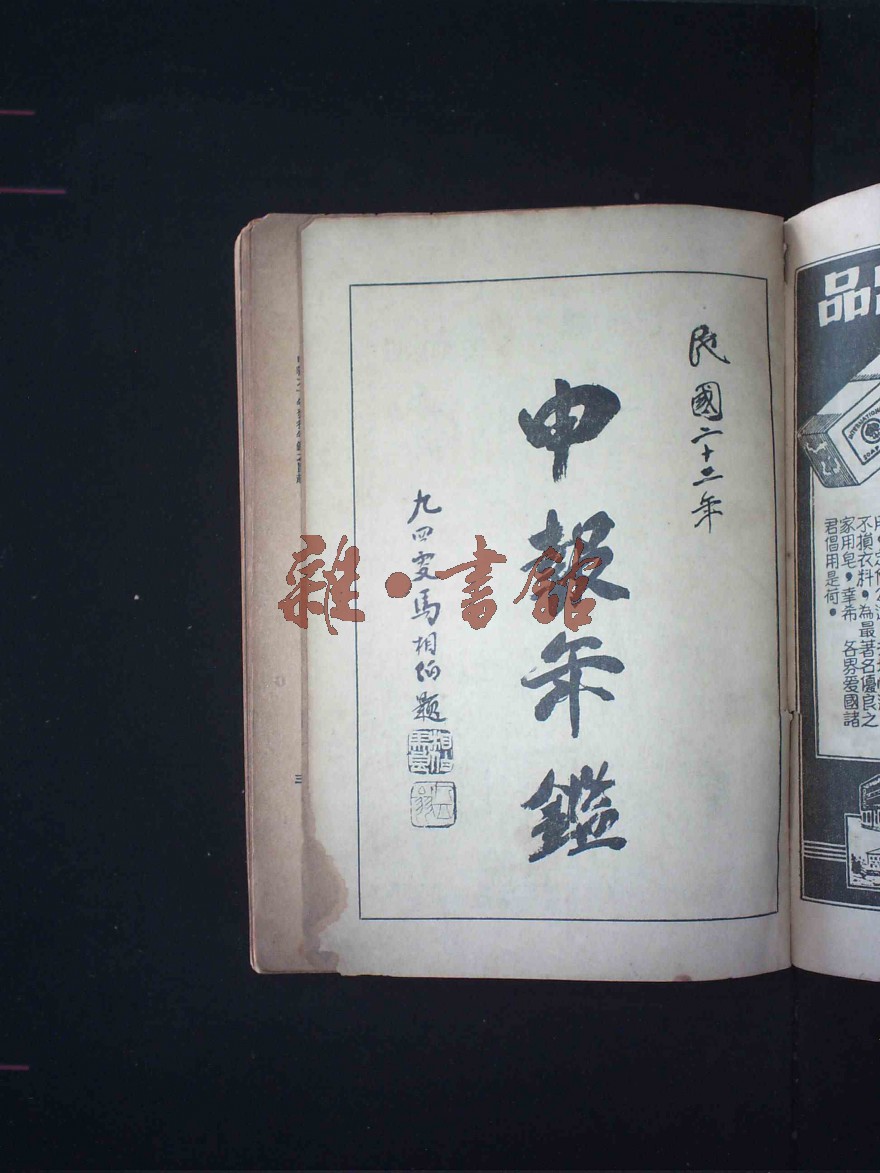 民國二十二年
申報年鑑
九四叟馬相伯題
雜·書館
品
INTERNATIONAL
SOAP
不損衣料。為最著名優良之
家用皂，華希 各界爱國諸
君倡用是荷。
三